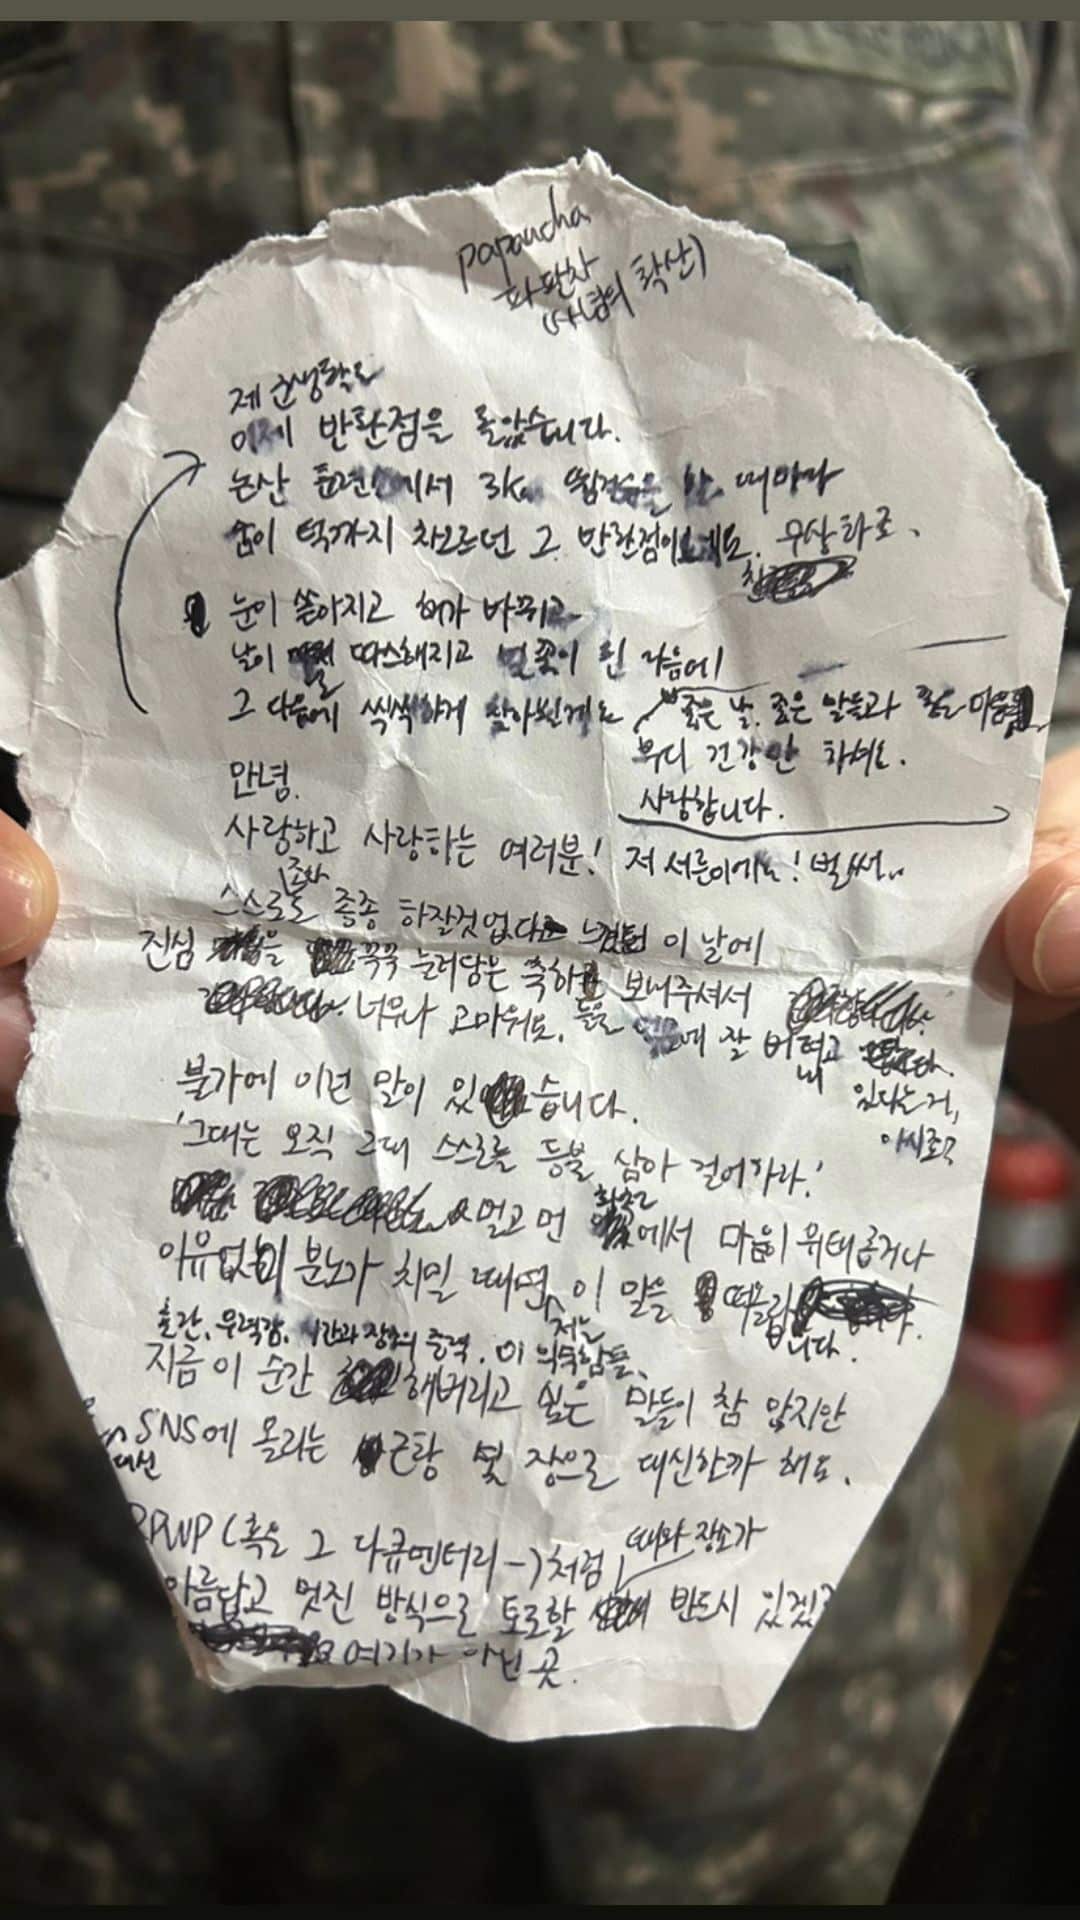 papancha
파판차
(사념의 확산)
제 군생활도
이제 반환점을 돌았습니다.
논산 훈련소에서 3km 뜀걸음을 할 때마다
숨이 턱까지 차오르던 그 반환점이요.
눈이 쏟아지고 해가 바뀌고
날이 따스해지고 벚꽃이 핀 다음에
그 다음에 씩씩하게 찾아뵐게요
좋은 날, 좋은 말들과 좋은 마음
부디 건강만 하셔요.
사랑합니다.
안녕.
사랑하고 사랑하는 여러분! 저 서른이에요! 벌써..
스스로도 종종 하잘것없다 느꼈던 이 날에
진심을 꾹꾹 눌러담은 축하를 보내주셔서
너무나 고마워요. 늘 잘 버텨내고
있다는 거,
아시죠?
불가에 이런 말이 있습니다.
'그대는 오직 그대 스스로를 등불 삼아 걸어가라.'
멀고 먼 화천에서 마음이 위태롭거나
이유없이 분노가 치밀 때면, 저는 이 말을 떠올립니다.
혼란, 무력감, 시간과 장소의 중력, 이 의숙함들,
지금 이 순간 해버리고 싶은 말들이 참 많지만
SNS에 몰리는 근황 몇 장으로 대신할까 해요.
RPWP (혹은 그 다큐멘터리-)처럼
아름답고 멋진 방식으로 토로할 때와 장소가 반드시 있겠죠
여기가 아닌 곳.